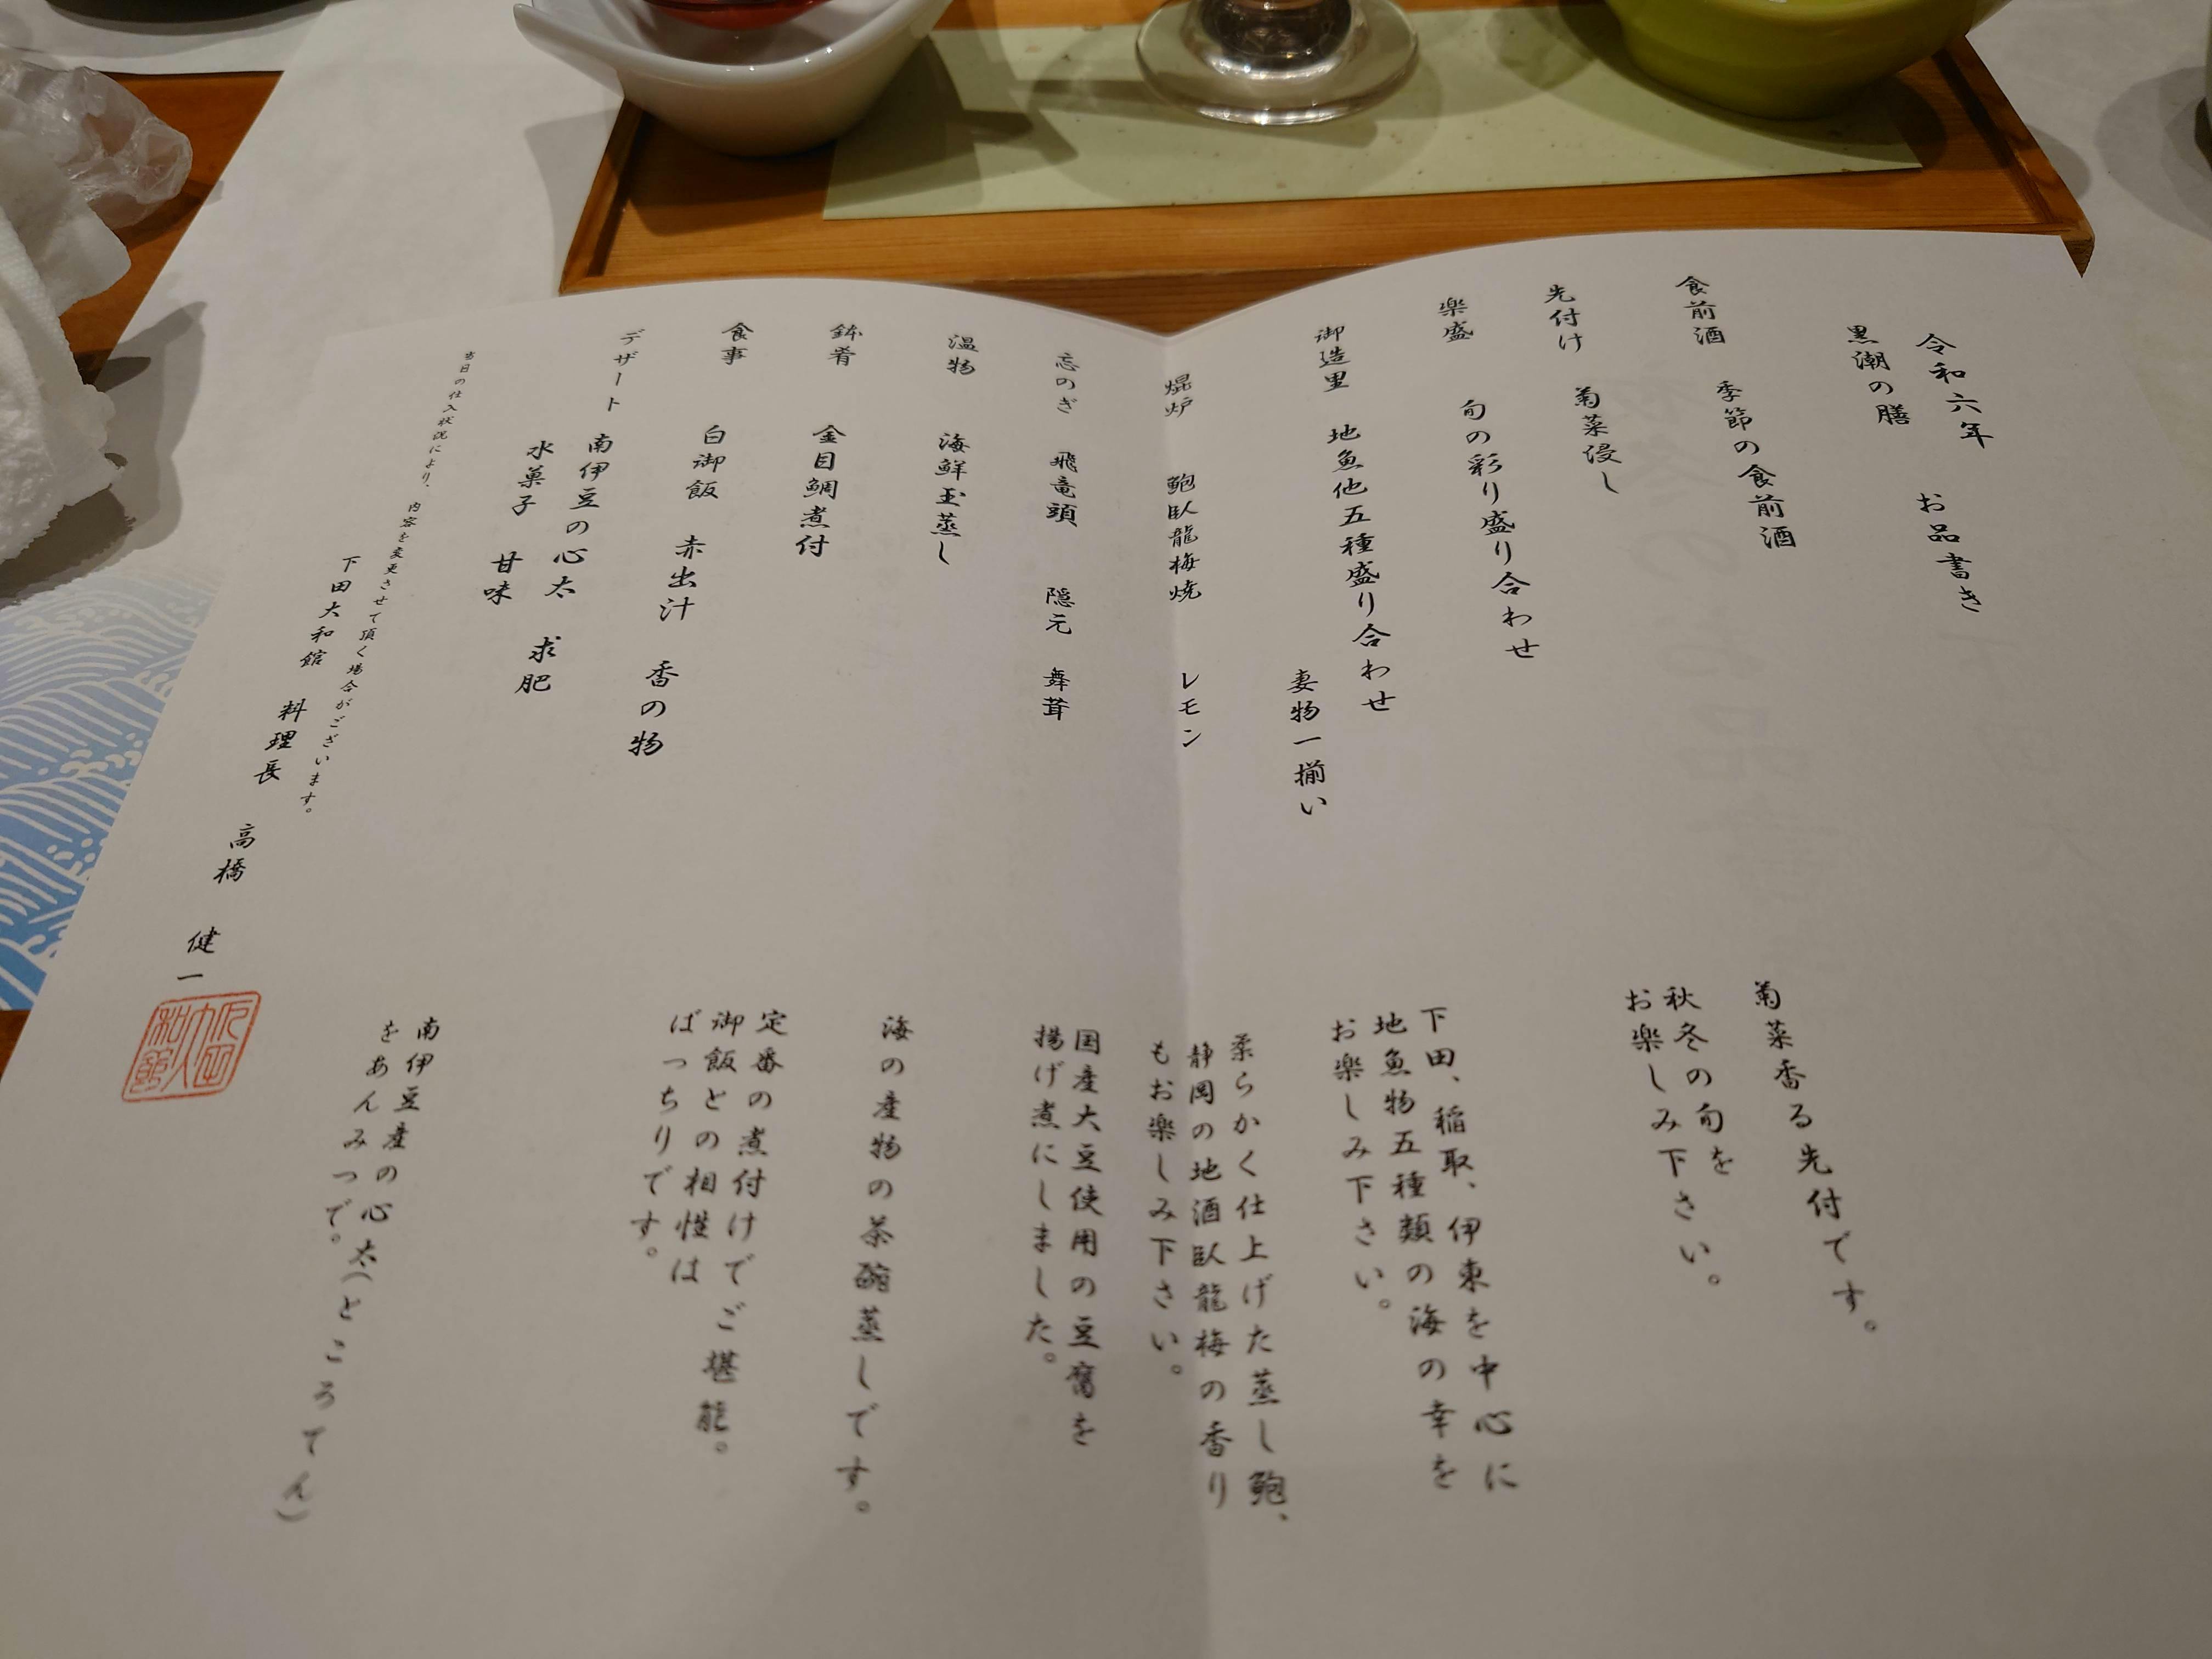 令和六年　お品書き
黒潮の膳
食前酒　季節の食前酒
先付け　菊菜浸し
楽盛　旬の彩り盛り合わせ
御造里　地魚他五種盛り合わせ
妻物一揃い
焜炉　鮑臥龍梅焼　レモン
忘のぎ　飛竜頭　隠元　舞茸
温物　海鮮玉蒸し
鉢肴　金目鯛煮付
食事　白御飯　赤出汁　香の物
デザート　南伊豆の心太　求肥
水菓子　甘味
当日の仕入状況により、内容を変更させて頂く場合がございます。
下田大和館　料理長　高橋　健一
菊菜香る先付です。
秋冬の旬を
お楽しみ下さい。
下田、稲取、伊東を中心に
地魚物五種類の海の幸を
お楽しみ下さい。
柔らかく仕上げた蒸し鮑、
静岡の地酒臥龍梅の香り
もお楽しみ下さい。
国産大豆使用の豆腐を
揚げ煮にしました。
海の産物の茶碗蒸しです。
定番の煮付けでご堪能。
御飯との相性は
ばっちりです。
南伊豆産の心太(ところてん)
をあんみつで。